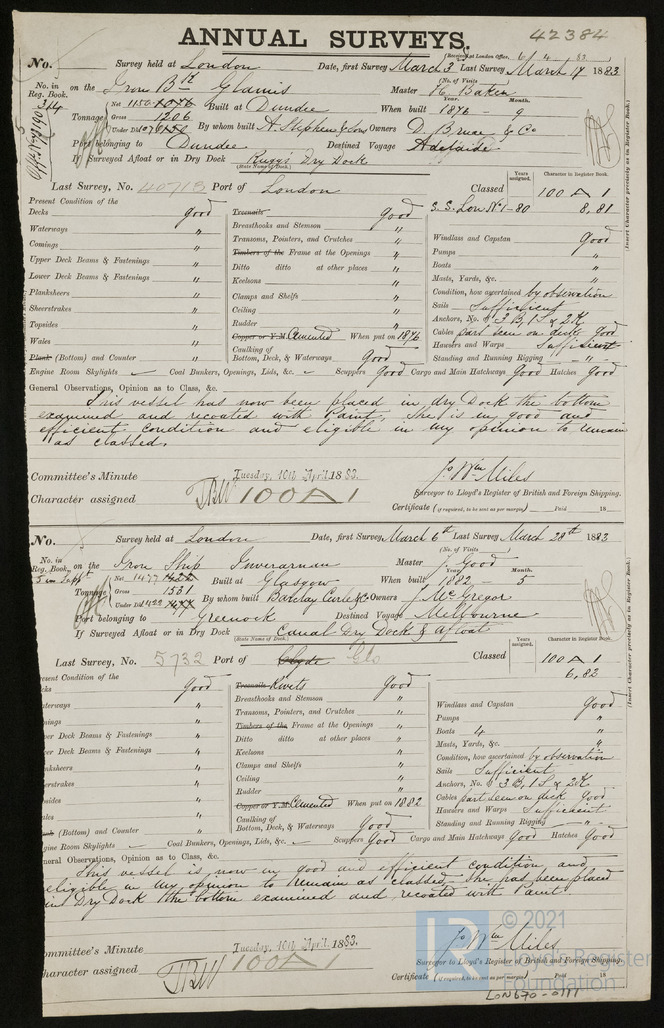 42384
ANNUAL SURVEYS.
(Received at London Office, 6/4/83)
No. Survey held at London Date, first Survey March 3 Last Survey March 17 1883
(No. of Visits)
No. in Reg. Book. 314 on the Iron Bk Glamis Master H. Baker
Tonnage Net 1150 1076 Built at Dundee When built 1876 - 9
Year. Month.
Gross 1206
Under Dk By whom built A. Stephen & Sons Owners D. Bruce & Co
Port belonging to Dundee Destined Voyage Adelaide
If Surveyed Afloat or in Dry Dock Rugg's Dry Dock
(State Name of Dock.)
Last Survey, No. 40713 Port of London Classed 100 A 1
Years assigned. Character in Register Book.
S.S. Lon No 1-80 8,81
Present Condition of the
Decks good Treenails good
Waterways " Breasthooks and Stemson "
Comings " Transoms, Pointers, and Crutches " Windlass and Capstan good
Upper Deck Beams & Fastenings " Timbers of the Frame at the Openings " Pumps "
Lower Deck Beams & Fastenings " Ditto ditto at other places " Boats "
Planksheers " Keelsons " Masts, Yards, &c. "
Sheerstrakes " Clamps and Shelfs " Condition, how ascertained by observation
Topsides " Ceiling " Sails Sufficient
Wales " Rudder " Anchors, No. of 3 B, 1 S, & 2 K
Plank (Bottom) and Counter " Copper or Y.M. Cemented When put on 1876 Cables part seen on deck good
Caulking of Bottom, Deck, & Waterways Good Hawsers and Warps Sufficient
Standing and Running Rigging "
Engine Room Skylights Coal Bunkers, Openings, Lids, &c. Scuppers Good Cargo and Main Hatchways Good Hatches Good
General Observations, Opinion as to Class, &c.
This vessel has now been placed in dry Dock the bottom
examined and recoated with Paint, She is in good and
efficient condition and eligible in my opinion to remain
as classed.
Committee's Minute Tuesday, 10th April, 1883.
Character assigned 100 A 1
Jo. Wm Miles
Surveyor to Lloyd's Register of British and Foreign Shipping.
Certificate (if required, to be sent as per margin) Paid 18
(Insert Character precisely as in Register Book.)
No. Survey held at London Date, first Survey March 6th Last Survey March 28th 1883
(No. of Visits)
No. in Reg. Book. 5 in Sept on the Iron Ship Inverarnan Master J. Good
Tonnage Net 1477 Built at Glasgow When built 1882 - 5
Year. Month.
Gross 1531
Under Dk 1422 By whom built Barclay Curle & Co Owners J. McGregor
Port belonging to Greenock Destined Voyage Melbourne
If Surveyed Afloat or in Dry Dock Canal Dry Dock & afloat
(State Name of Dock.)
Last Survey, No. 5732 Port of Clyde Glo Classed 100 A 1
Years assigned. Character in Register Book.
6,82
esent Condition of the
cks good Treenails Rivets Good
aterways " Breasthooks and Stemson " Windlass and Capstan Good
mings " Transoms, Pointers, and Crutches " Pumps "
er Deck Beams & Fastenings " Timbers of the Frame at the Openings " Boats 4 "
er Deck Beams & Fastenings " Ditto ditto at other places " Masts, Yards, &c. "
nksheers " Keelsons " Condition, how ascertained by observation
erstrakes " Clamps and Shelfs " Sails Sufficient
sides " Ceiling " Anchors, No. of 3 B, 1 S, & 2 K
ales " Rudder " Cables part seen on deck good
(Bottom) and Counter " Copper or Y.M. Cemented When put on 1882 Hawsers and Warps Sufficient
Caulking of Bottom, Deck, & Waterways Good Standing and Running Rigging "
gine Room Skylights Coal Bunkers, Openings, Lids, &c. Scuppers Good Cargo and Main Hatchways Good Hatches Good
neral Observations, Opinion as to Class, &c.
This vessel is now in good and efficient condition and
eligible in my opinion to remain as classed. She has been placed
in Dry Dock the bottom examined and recoated with Paint.
ommittee's Minute Tuesday, 10th April, 1883.
haracter assigned 100 A 1
Jo. Wm Miles
Surveyor to Lloyd's Register of British and Foreign Shipping.
Certificate (if required, to be sent as per margin) Paid 18
(Insert Character precisely as in Register Book.)
LR © 2021
Lloyd's Register
Foundation
LON670-0111